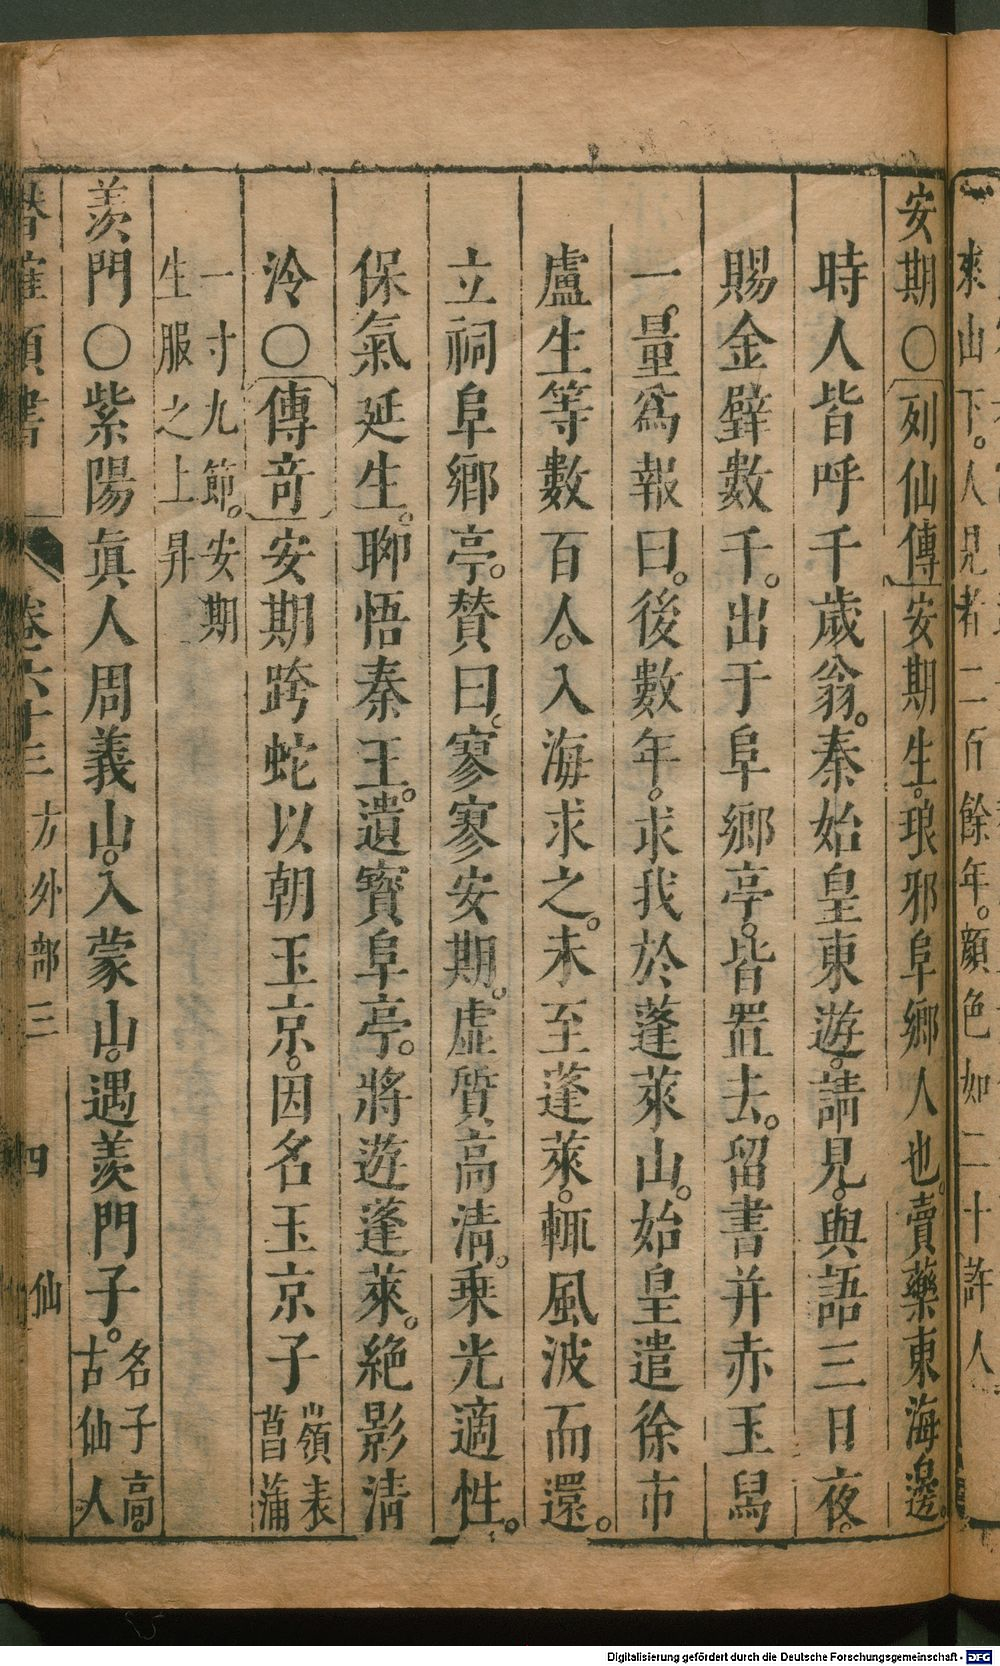 來山下。人見者二百餘年。顔色如二十許人
安期〇列仙傳安期生。琅邪阜鄉人也。賣藥東海邊。
時人皆呼千歲翁。秦始皇東遊。請見。與語三日夜。
賜金璧數千。出于阜鄉亭。皆置去。留書并赤玉舄
一。量爲報曰。後數年。求我於蓬萊山。始皇遣徐市
盧生等數百人。入海求之。未至蓬萊。輒風波而還。
立祠阜鄉亭。贊曰。寥寥安期。虛質高清。乗光適性。
保氣延生。聊悟秦王。遺寳阜亭。將遊蓬萊。絶影清
泠〇傳竒安期跨蛇以朝玉京。因名玉京子嶺表山菖蒲
一寸九節。安期
生服之上昇
羨門〇紫陽真人周義山。入蒙山。遇羨門子。名子高。古仙人
卷六十三 方外部三 四 仙
Digitalisierung gefördert durch die Deutsche Forschungsgemeinschaft - DFG